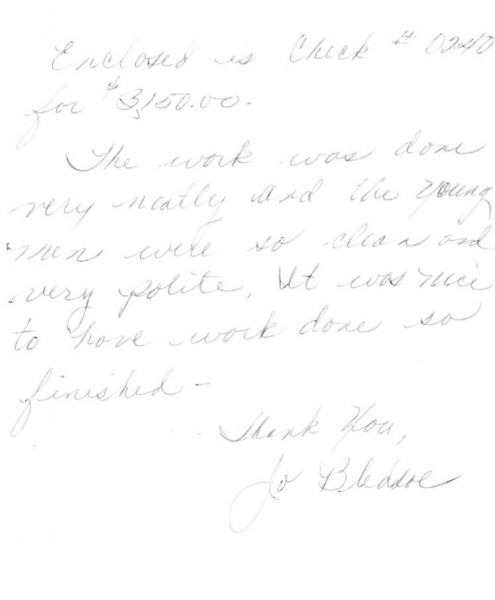 Enclosed is Check # 0240
for $3,150.00.
The work was done
very neatly and the young
men were so clean and
very polite. It was nice
to have work done so
finished -
Thank You,
Jo Bledsoe